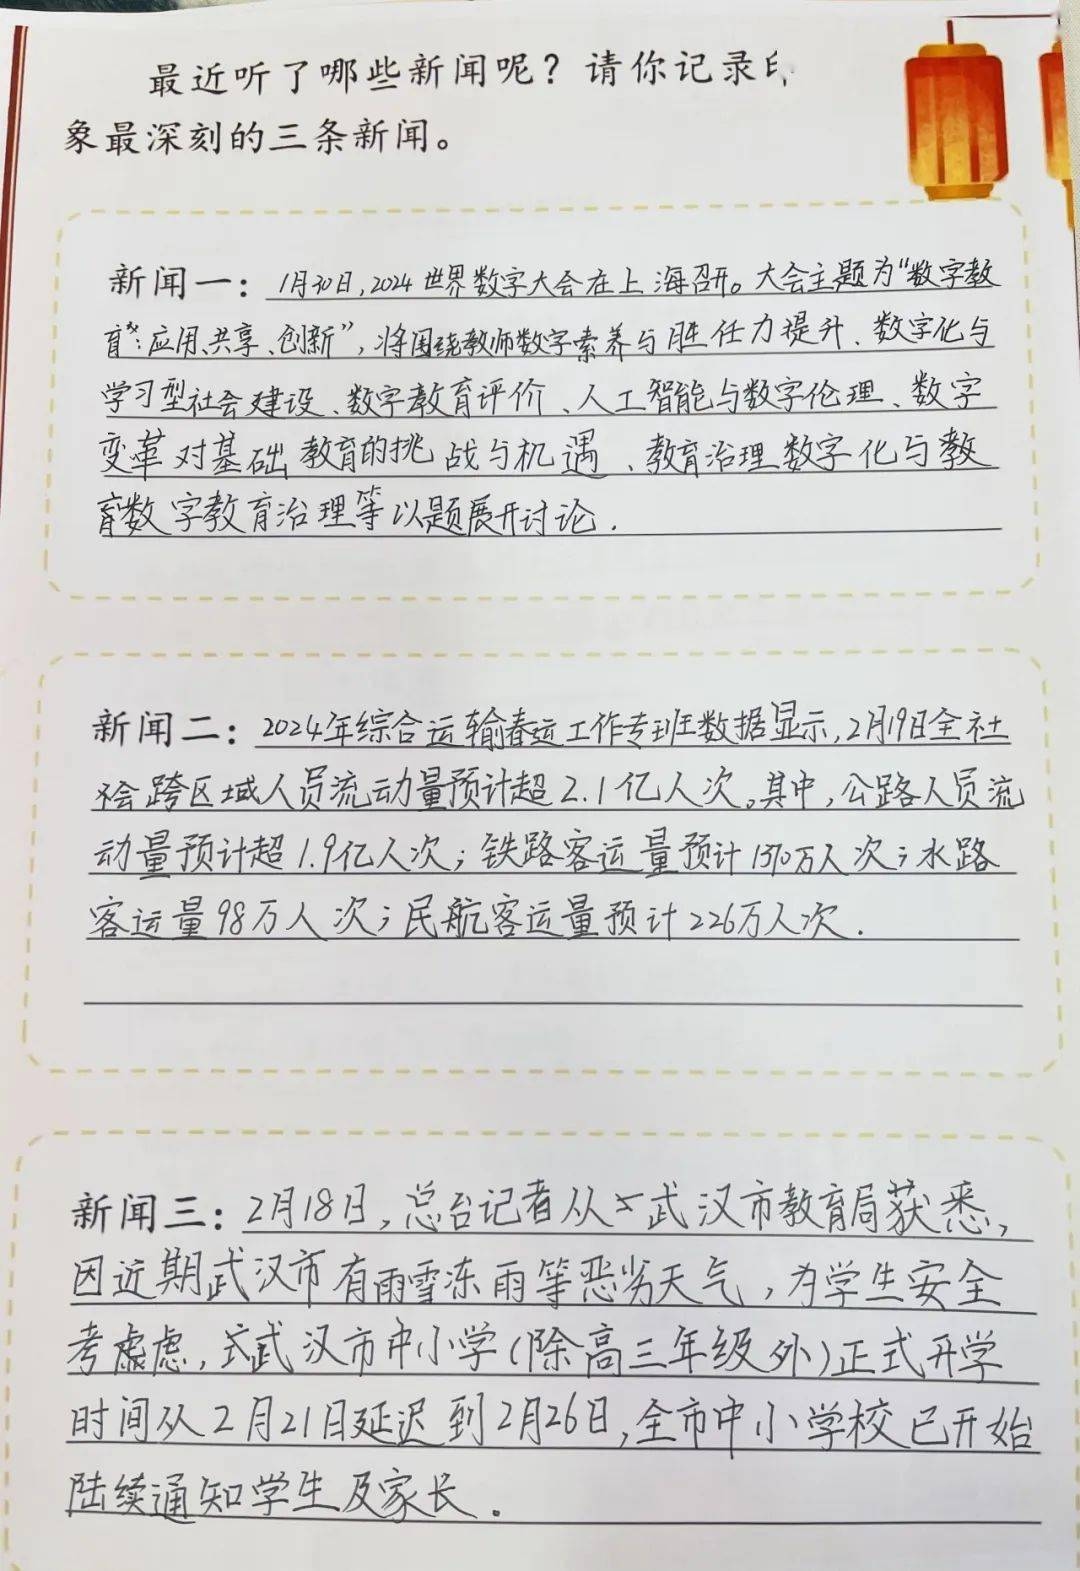 最近听了哪些新闻呢？请你记录印
象最深刻的三条新闻。
新闻一：1月30日，2024世界数字大会在上海召开。大会主题为“数字教
育：应用、共享、创新”，将围绕教师数字素养与胜任力提升、数字化与
学习型社会建设、数字教育评价、人工智能与数字伦理、数字
变革对基础教育的挑战与机遇、教育治理数字化与教
育数字教育治理等以题展开讨论.
新闻二：2024年综合运输春运工作专班数据显示，2月19日全社
会跨区域人员流动量预计超2.1亿人次。其中，公路人员流
动量预计超1.9亿人次；铁路客运量预计1370万人次；水路
客运量98万人次；民航客运量预计226万人次.
新闻三：2月18日，总台记者从武汉市教育局获悉，
因近期武汉市有雨雪冻雨等恶劣天气，为学生安全
考虑，武汉市中小学（除高三年级外）正式开学
时间从2月21日延迟到2月26日，全市中小学校已开始
陆续通知学生及家长。